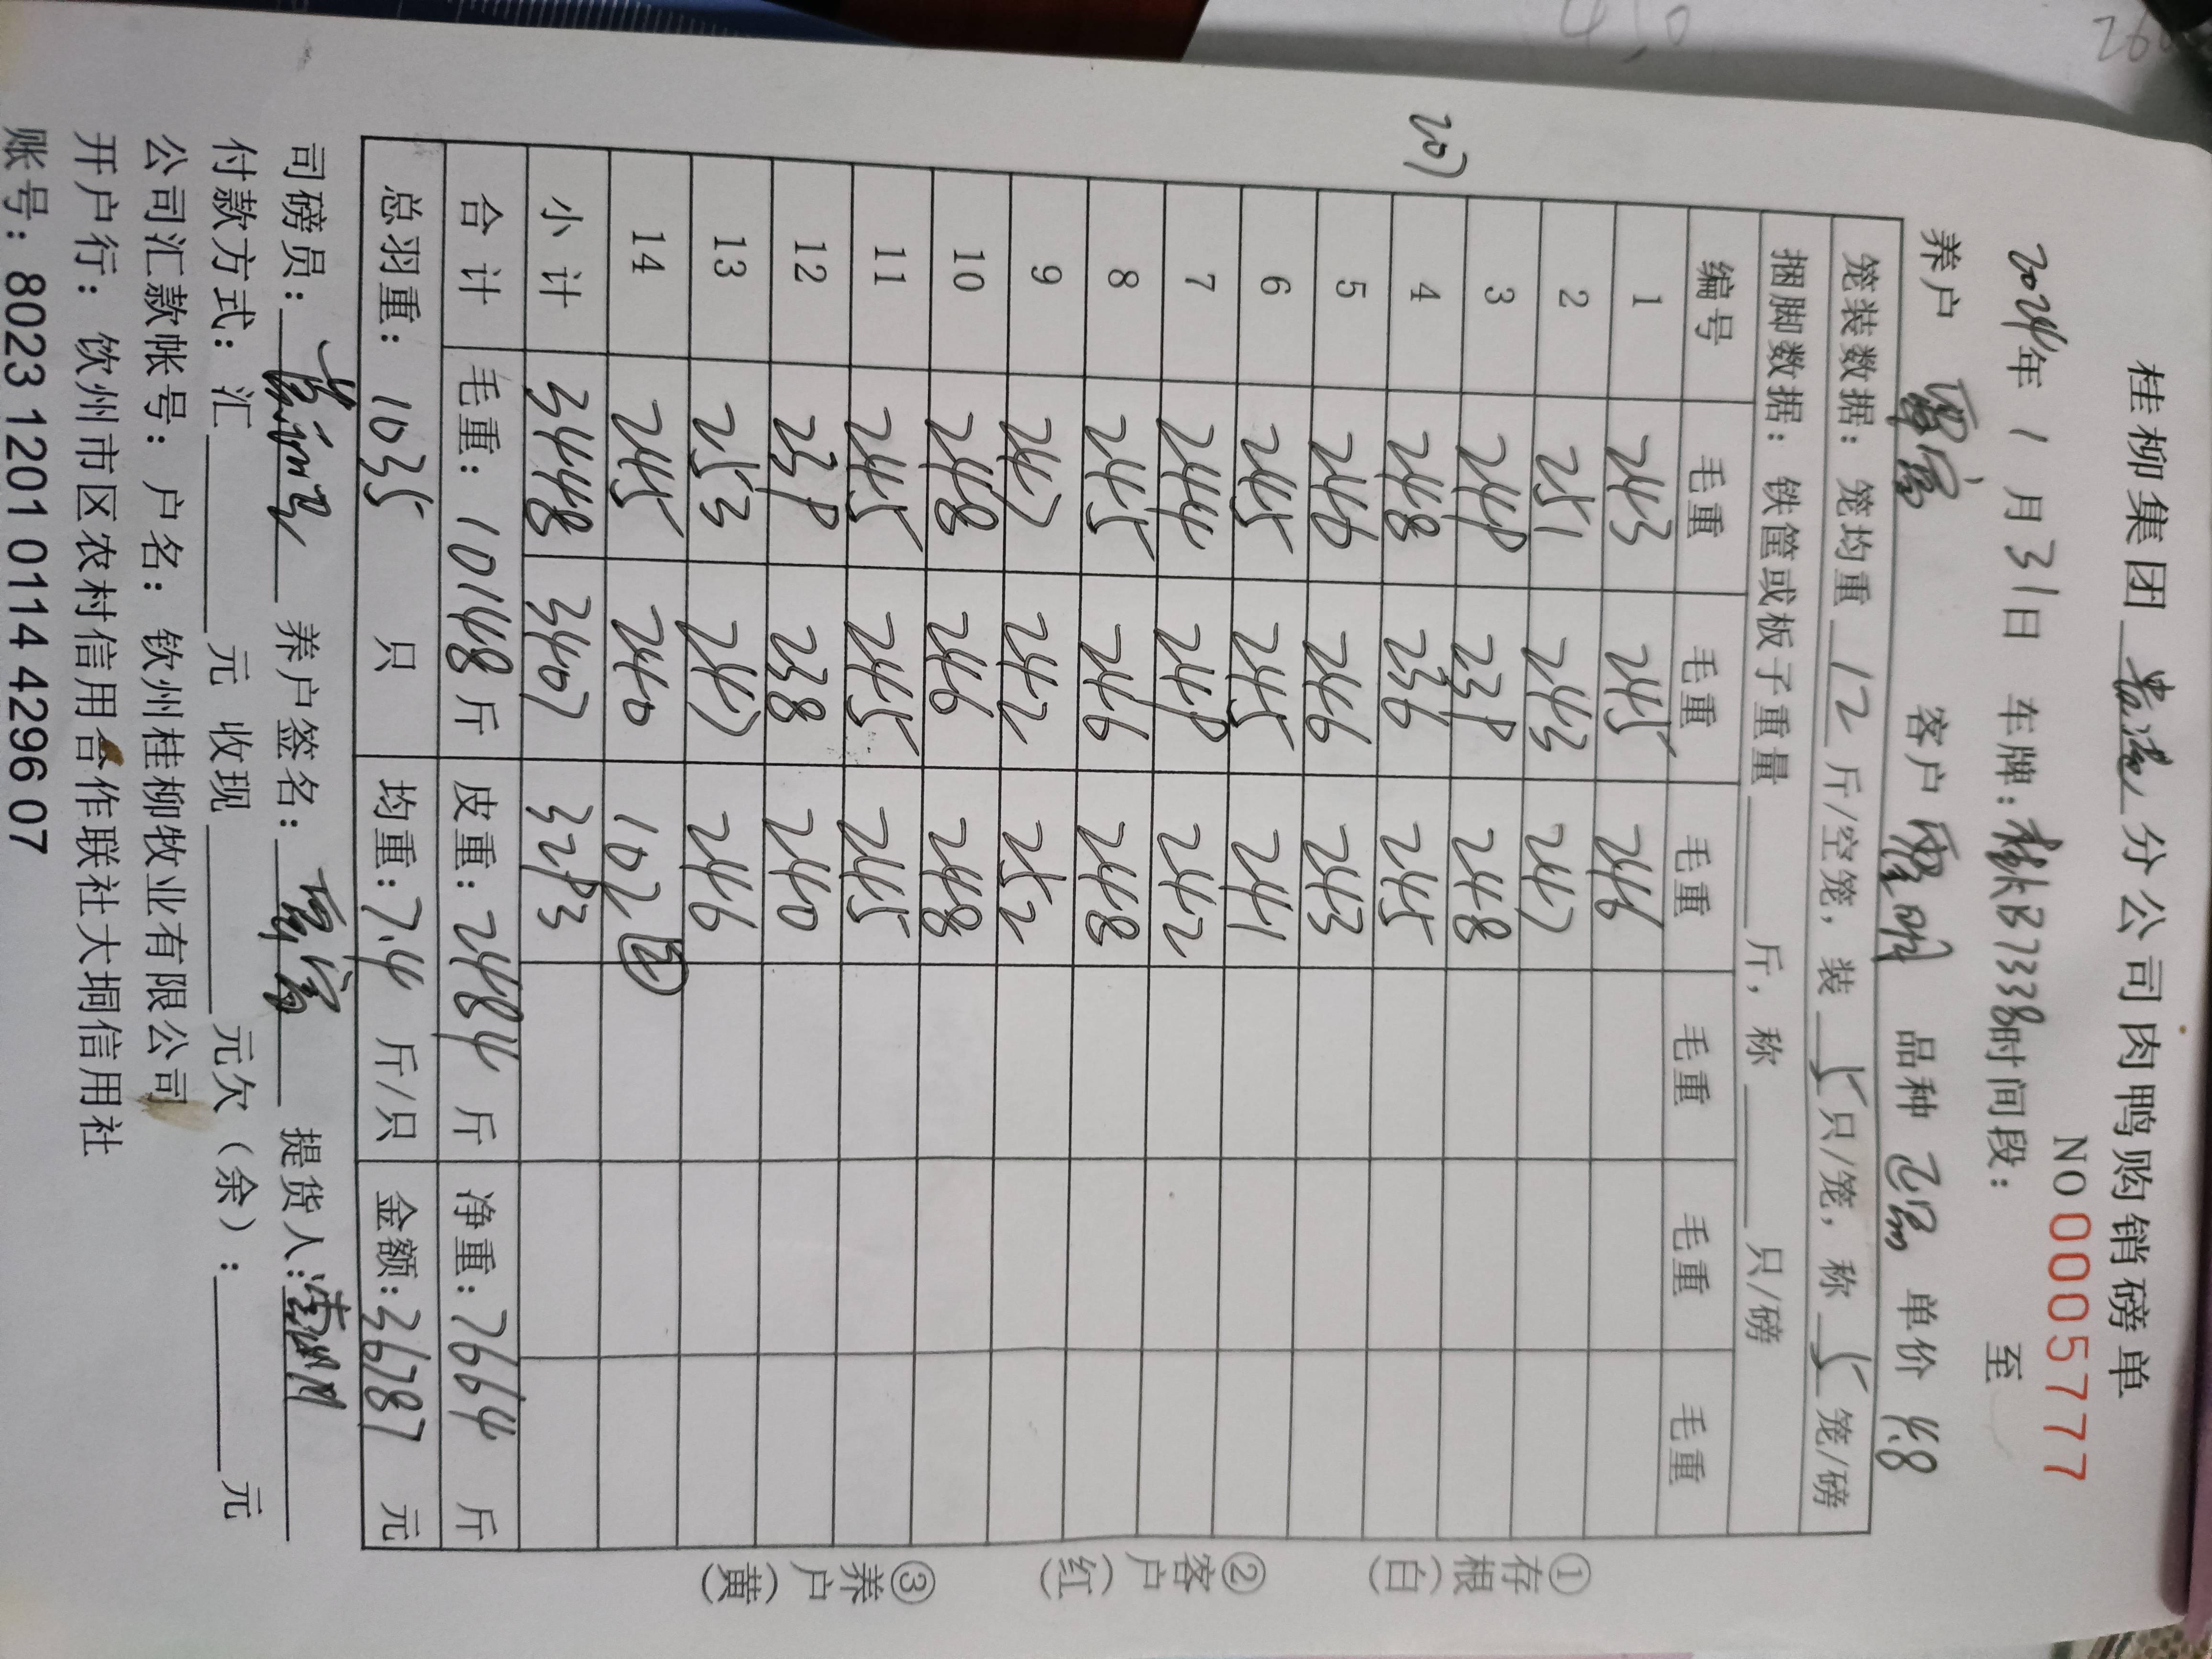 桂柳集团 贵港 分公司肉鸭购销磅单
NO 0005777
2024年 1 月 31日 车牌：桂KB73338时间段： 至
养户 客户 明 品种 单价 4.8
笼装数据：笼均重 12 斤/空笼，装 5 只/笼，称 5 笼/磅
捆脚数据：铁筐或板子重量 斤，称 只/磅
编号 毛重 毛重 毛重 毛重 毛重 毛重
1 243 245 246
2 251 243 247
3 249 239 248
4 248 236 245
5 246 246 243
6 245 245 241
7 244 249 242
8 245 246 248
9 247 242 252
10 248 246 248
11 245 245 245
12 239 238 240
13 253 247 246
14 245 240 102
小计 3448 3407 3293
合计 毛重：10148斤 皮重：2484 斤 净重：7664 斤
总羽重：1035 只 均重：7.4 斤/只 金额：36787 元
司磅员： 养户签名： 提货人：
付款方式：汇 元 收现 元欠（余）： 元
公司汇款帐号：户名：钦州桂柳牧业有限公司
开户行：钦州市区农村信用合作联社大垌信用社
账号：8023 1201 0114 4296 07
①存根（白）
②客户（红）
③养户（黄）
207